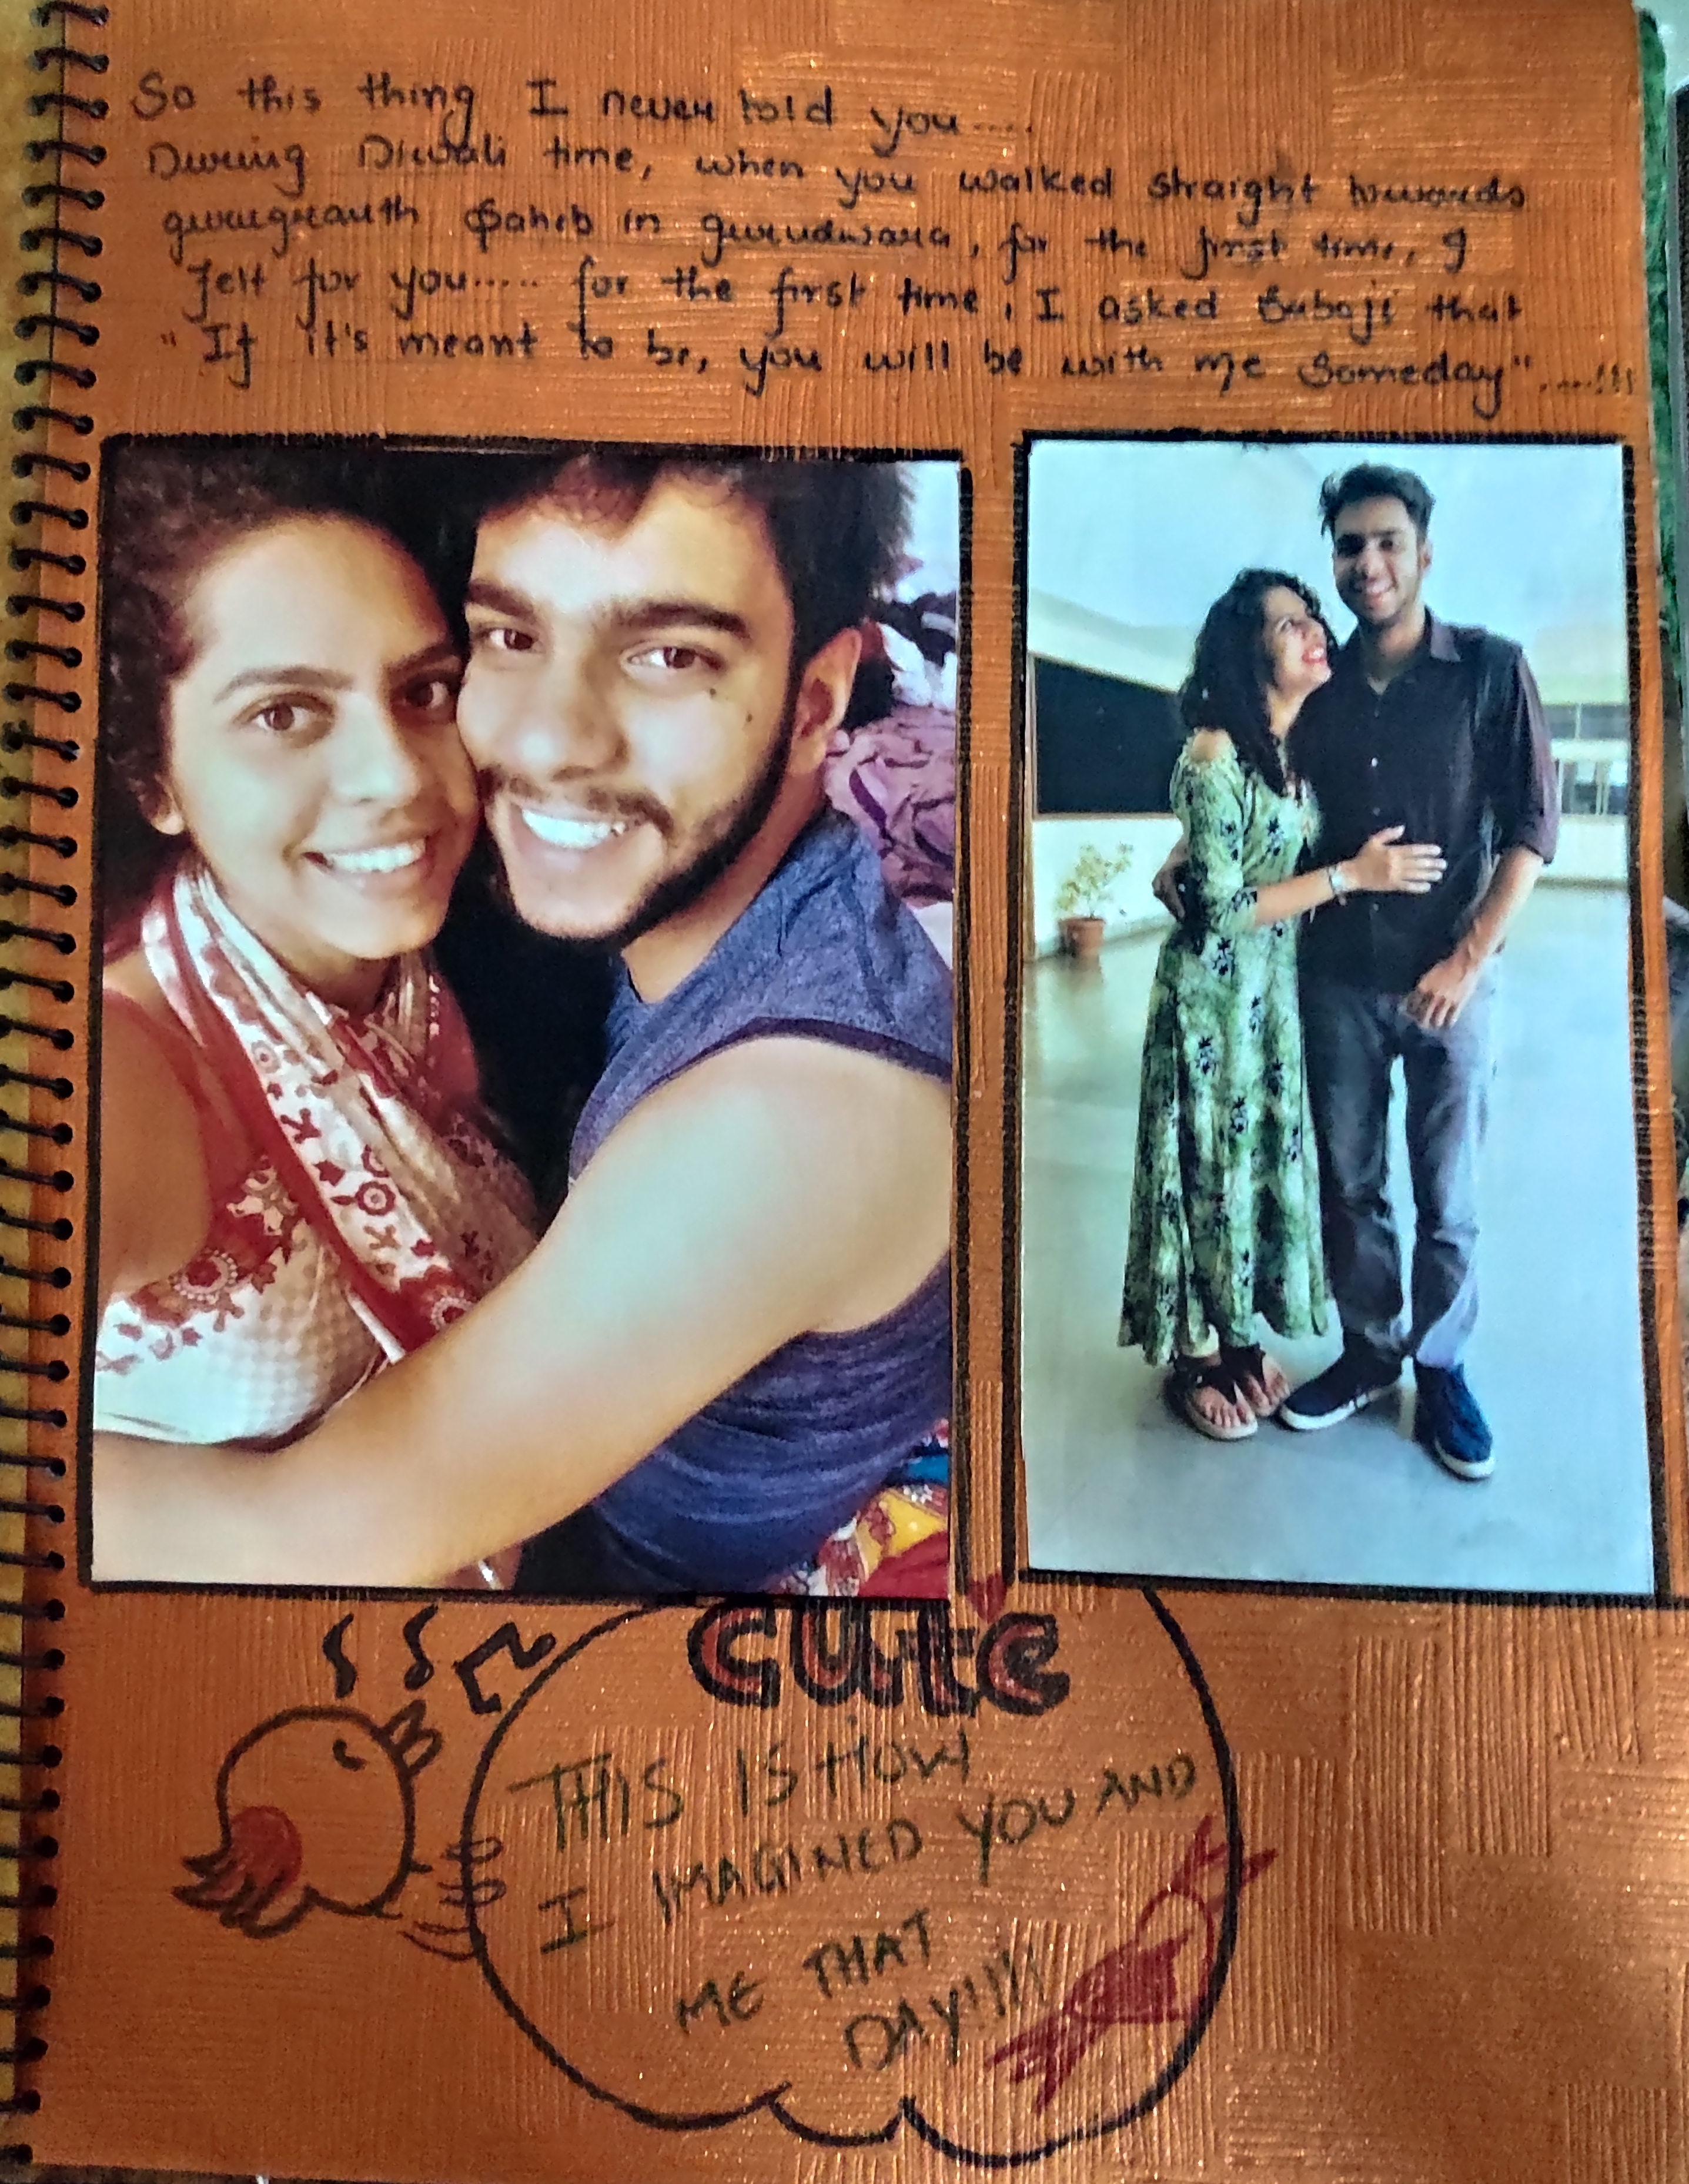 So this thing I never told you.....
During Diwali time, when you walked straight towards
gurugranth Saheb in gurudwara, for the first time, I
felt for you...... for the first time, I asked Babaji that
"If it's meant to be, you will be with me someday".....!!!
cute
THIS IS HOW
I IMAGINED YOU AND
ME THAT
DAY!!!!